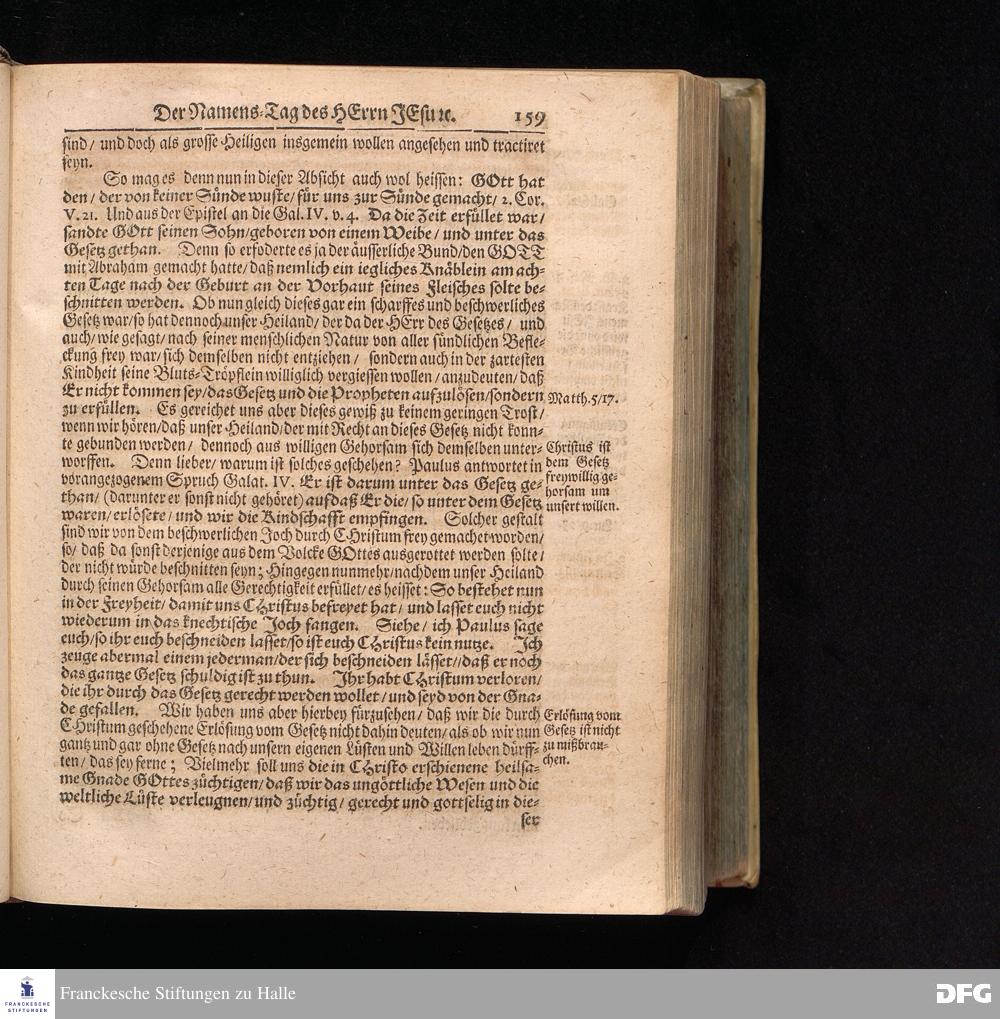 Der Namens-Tag des HErrn JEsu ꝛc. 159
sind/ und doch als grosse Heiligen insgemein wollen angesehen und tractiret
seyn.
So mag es denn nun in dieser Absicht auch wol heissen: GOtt hat
den/ der von keiner Sünde wuste/ für uns zur Sünde gemacht/ 2. Cor.
V. 21. Und aus der Epistel an die Gal. IV. v. 4. Da die Zeit erfüllet war/
sandte GOtt seinen Sohn/ geboren von einem Weibe/ und unter das
Gesetz gethan. Denn so erfoderte es ja der äusserliche Bund/ den GOTT
mit Abraham gemacht hatte/ daß nemlich ein iegliches Knäblein am ach-
ten Tage nach der Geburt an der Vorhaut seines Fleisches solte be-
schnitten werden. Ob nun gleich dieses gar ein scharffes und beschwerliches
Gesetz war/ so hat dennoch unser Heiland/ der da der HErr des Gesetzes/ und
auch/ wie gesagt/ nach seiner menschlichen Natur von aller sündlichen Befle-
ckung frey war/ sich demselben nicht entziehen/ sondern auch in der zartesten
Kindheit seine Bluts-Tröpflein williglich vergiessen wollen/ anzudeuten/ daß
Er nicht kommen sey/ das Gesetz und die Propheten aufzulösen/ sondern
zu erfüllen. Es gereichet uns aber dieses gewiß zu keinem geringen Trost/
wenn wir hören/ daß unser Heiland/ der mit Recht an dieses Gesetz nicht konn-
te gebunden werden/ dennoch aus willigen Gehorsam sich demselben unter-
worffen. Denn lieber/ warum ist solches geschehen? Paulus antwortet in
vorangezogenem Spruch Galat. IV. Er ist darum unter das Gesetz ge-
than/ (darunter er sonst nicht gehöret) auf daß Er die/ so unter dem Gesetz
waren/ erlösete/ und wir die Kindschafft empfingen. Solcher gestalt
sind wir von dem beschwerlichen Joch durch Christum frey gemachet worden/
so/ daß da sonst derjenige aus dem Volcke GOttes ausgerottet werden solte/
der nicht würde beschnitten seyn; Hingegen nunmehr/ nachdem unser Heiland
durch seinen Gehorsam alle Gerechtigkeit erfüllet/ es heisset: So bestehet nun
in der Freyheit/ damit uns CHristus befreyet hat/ und lasset euch nicht
wiederum in das knechtische Joch fangen. Siehe/ ich Paulus sage
euch/ so ihr euch beschneiden lasset/ so ist euch CHristus kein nutze. Ich
zeuge abermal einem jederman/ der sich beschneiden lässet// daß er noch
das gantze Gesetz schuldig ist zu thun. Ihr habt CHristum verloren/
die ihr durch das Gesetz gerecht werden wollet/ und seyd von der Gna-
de gefallen. Wir haben uns aber hierbey fürzusehen/ daß wir die durch
CHristum geschehene Erlösung vom Gesetz nicht dahin deuten/ als ob wir nun
gantz und gar ohne Gesetz nach unsern eigenen Lüsten und Willen leben dürff-
ten/ das sey ferne; Vielmehr soll uns die in CHristo erschienene heilsa-
me Gnade GOttes züchtigen/ daß wir das ungöttliche Wesen und die
weltliche Lüste verleugnen/ und züchtig/ gerecht und gottselig in die-
ser
Matth. 5/17.
Christus ist
dem Gesetz
freywillig ge-
horsam um
unsert willen.
Erlösung vom
Gesetz ist nicht
zu mißbrau-
chen.
FRANCKESCHE
STIFTUNGEN
Franckesche Stiftungen zu Halle
DFG